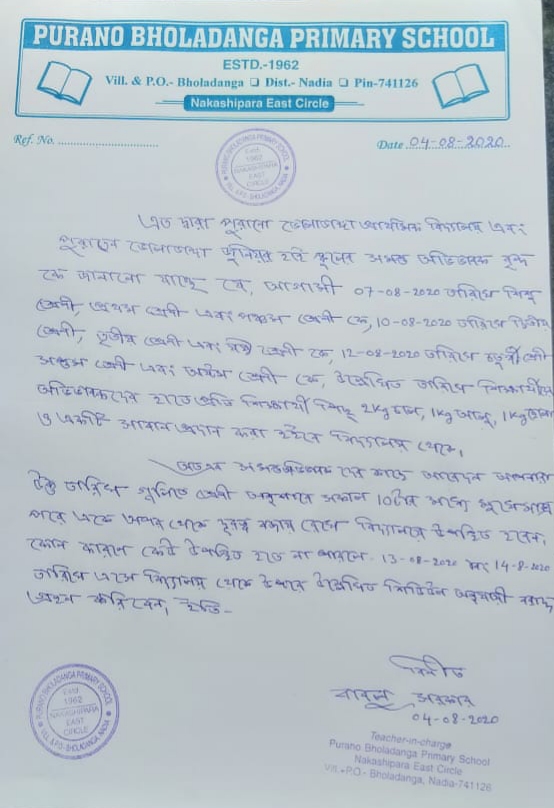 PURANO BHOLADANGA PRIMARY SCHOOL
ESTD.-1962
Vill. & P.O.- Bholadanga ❑ Dist.- Nadia ❑ Pin-741126
Nakashipara East Circle
Ref. No. ............................
Date 04-08-2020
PURANO BHOLADANGA PRIMARY SCHOOL
Estd. 1962
NAKASHIPARA EAST CIRCLE
VILL & P.O.-BHOLADANGA, NADIA
এত দ্বারা পুরানো ভোলাডাঙ্গা প্রাথমিক বিদ্যালয় এবং
পুরাতন ভোলাডাঙ্গা জুনিয়র হাই স্কুলের সমস্ত অভিভাবক বৃন্দ
কে জানানো যাচ্ছে যে, আগামী 07-08-2020 তারিখে শিশু
শ্রেণী, প্রথম শ্রেণী এবং পঞ্চম শ্রেণী কে, 10-08-2020 তারিখে দ্বিতীয়
শ্রেণী, তৃতীয় শ্রেণী এবং ষষ্ঠ শ্রেণী কে, 12-08-2020 তারিখে চতুর্থ শ্রেণী
সপ্তম শ্রেণী এবং অষ্টম শ্রেণী কে, উল্লেখিত তারিখে শিক্ষার্থীদের
অভিভাবকদের হাতে প্রতি শিক্ষার্থী পিছু 2kg চাল, 1kg আলু, 1kg ছোলা
ও একটি সাবান প্রদান করা হইবে বিদ্যালয় থেকে,
অতএব সমস্ত অভিভাবক দের কাছে আবেদন আপনারা
উক্ত তারিখ গুলিতে শ্রেণী অনুসারে সকাল 10টার মধ্যে মুখে মাস্ক
পরে একে অপর থেকে দূরত্ব বজায় রেখে বিদ্যালয়ে উপস্থিত হবেন,
কোন কারনে কেউ উপস্থিত হতে না পারলে 13-08-2020 14-8-2020
তারিখে এসে বিদ্যালয় থেকে উপরে উল্লেখিত অনুযায়ী বরাদ্দ
গ্রহন করিবেন, ইতি-
বিনীত
বাবলু সরকার
04-08-2020
Teacher-in-charge
Purano Bholadanga Primary School
Nakashipara East Circle
Vill.+P.O.- Bholadanga, Nadia-741126
PURANO BHOLADANGA PRIMARY SCHOOL
Estd. 1962
NAKASHIPARA EAST CIRCLE
VILL & P.O.-BHOLADANGA, NADIA